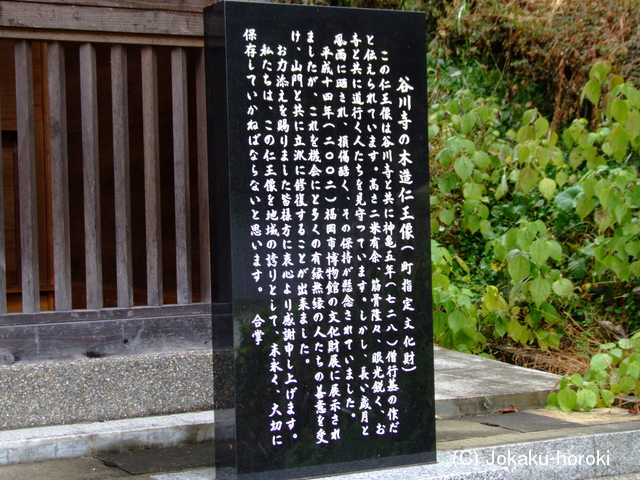 谷川寺の木造仁王像(町指定文化財)
この仁王像は谷川寺と共に神亀五年(七二八)僧行基の作だ
と伝えられています。高さ二米有余、筋骨隆々、眼光鋭く、お
寺と共に道行く人たちを見守つています。しかし、長い歳月と
風雨に晒され、損傷酷く、その保持が懸念されていました。
平成十四年(二〇〇二)福岡市博物館の文化財展に展示され
ましたが、これを機会にと多くの有縁無縁の人たちの善意を受
け、山門と共に立派に修復することが出来ました。
お力添えを賜りました皆様方に衷心より感謝申し上げます。
私たちは、この仁王像を地域の誇りとして、末永く、大切に
保存していかねばならないと思います。 合掌
(C) Jokaku-horoki